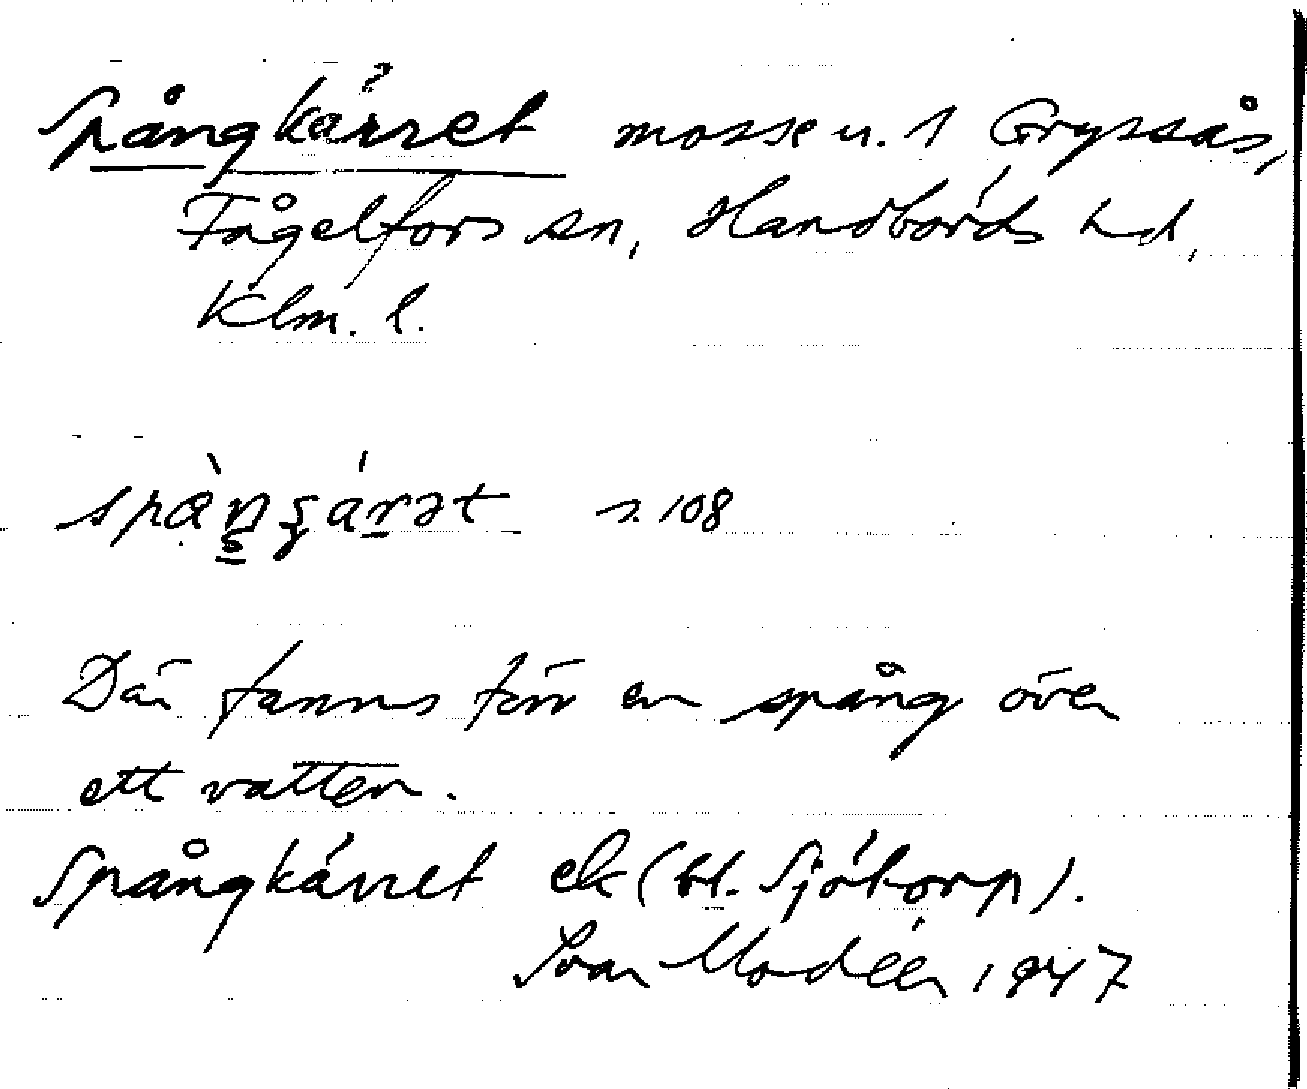 Spångkärret mosse u. 1 Gryssås,
Fågelfors sn, Handbörds hd,
Klm. l.
s. 108
Där fanns förr en spång över
ett vatten.
Spångkärret ek (bl. Sjötorp).
Ivar Modéer 1947